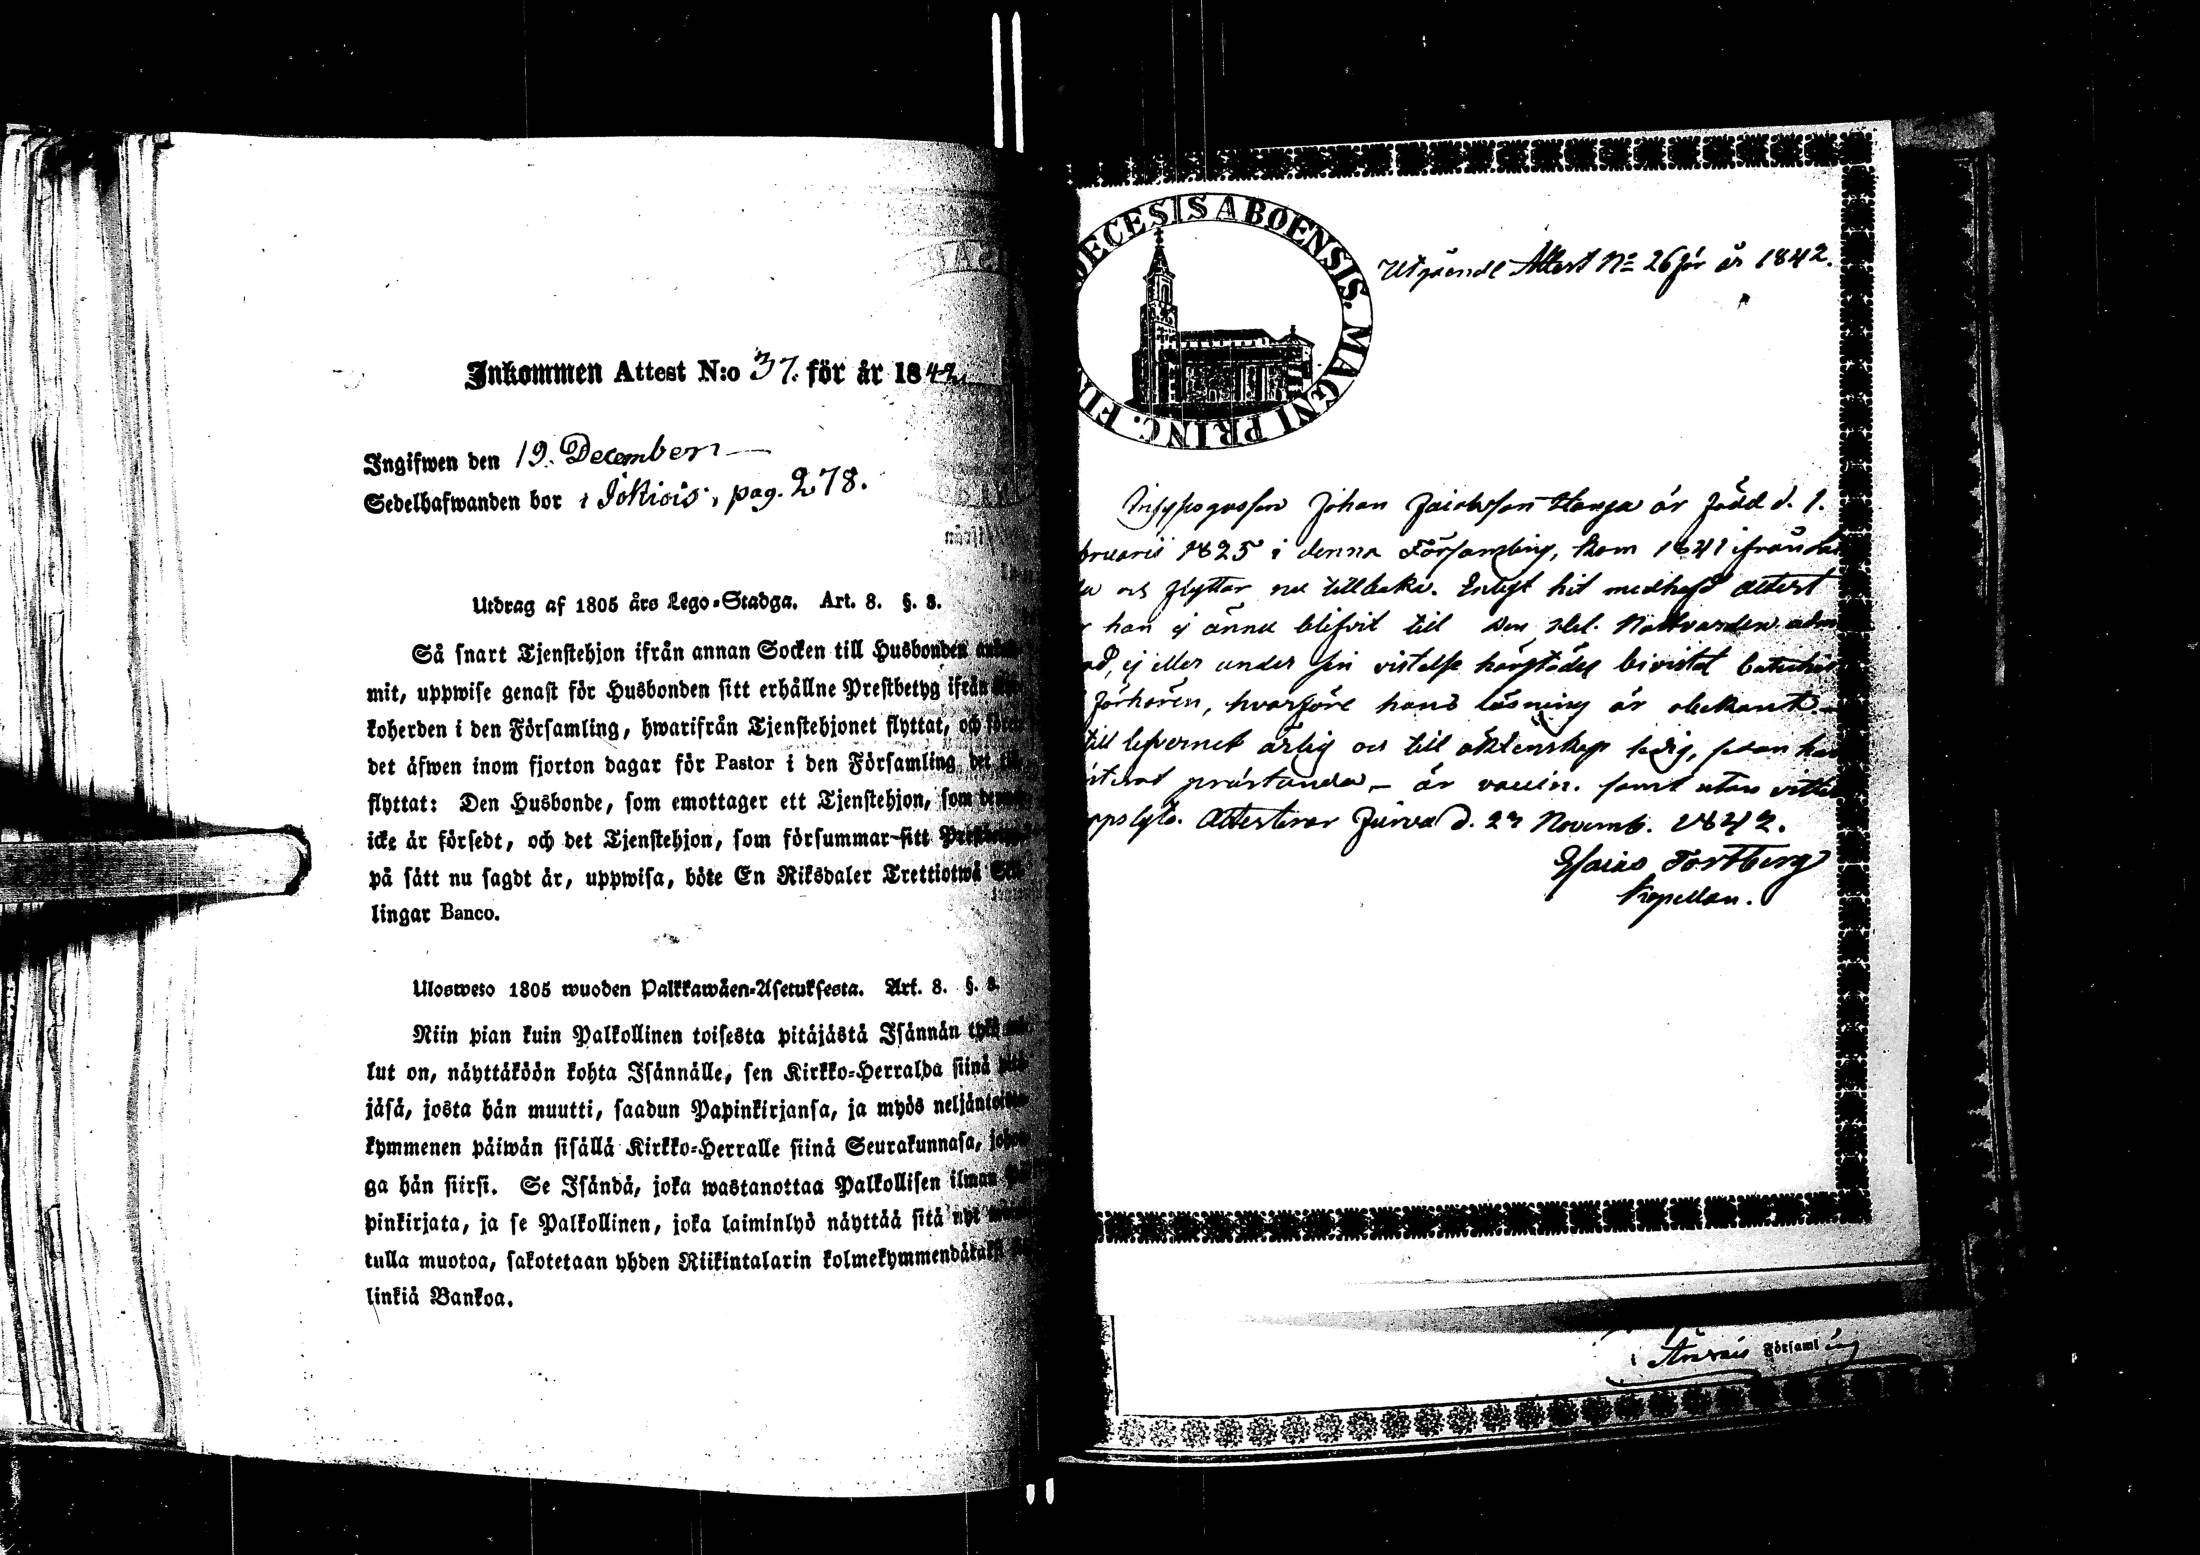 Inkommen Attest N:o 37. för år 1842
Ingifwen den 19. December
Sedelhafwanden bor i Jokiois, pag. 278.
Utdrag af 1805 års Lego-Stadga. Art. 8. §. 8.
Så snart Tjenstehjon ifrån annan Socken till Husbonden
mit, uppwise genast för Husbonden sitt erhållne Prestbetyg ifrån
koherden i den Församling, hwarifrån Tjenstehjonet flyttat, och
det äfwen inom fjorton dagar för Pastor i den Församling det
flyttat: Den Husbonde, som emottager ett Tjenstehjon, som
icke är försedt, och det Tjenstehjon, som försummar sitt
på sätt nu sagdt är, uppwisa, böte En Riksdaler Trettiotwå
lingar Banco.
Ulosweso 1805 wuoden Palkkawäen-Asetuksesta. Art. 8. §. 8.
Niin pian kuin Palkollinen toisesta pitäjästä Isännän
lut on, näyttäköön kohta Isännälle, sen Kirkko-Herralda siinä
jäsä, josta hän muutti, saadun Papinkirjansa, ja myös
kymmenen päiwän sisällä Kirkko-Herralle siinä Seurakunnasa,
ga hän siirsi. Se Isändä, joka wastanottaa Palkollisen ilman
pinkirjata, ja se Palkollinen, joka laiminlyö näyttää sitä nyt
tulla muotoa, sakotetaan yhden Riikintalarin
linkiä Bankoa.
DECESIS ABOENSIS. MAGNI PRINC. FIN
Utgående Attest No 26 för år 1842.
Johan Jacobsson Hanga är född d. 1.
bruarii 1825 i denna Församling, kom 1841 ifrån
och flyttar nu tillbaka. Enligt hit medhafd attest
han ej ännu blifvit till den Hel. Nattvarden
ej eller under sin vistelse härstädes bivistat
förhören, hvarföre hans läsning är obekant.
till lefvernet ärlig och till äktenskap ledig,
prästanda, är vaccin. samt utan
Attesterar Jurva d. 27 Novemb. 1842.
Esaias Forsberg
Kapellan.
i Församling